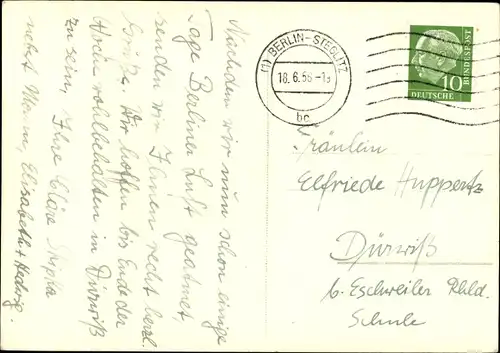 Nachdem wir nun schon einige
Tage Berliner Luft geatmet,
senden wir Ihnen recht herzl.
Grüße. Wir hoffen bis Ende der
Ferien wohlbehalten in Dürwiß
zu sein, Ihre Cläre
nebst Mann, Elisabeth + Hedwig.
(1) BERLIN-STEGLITZ
18.6.56-1
bc
10
BUNDESPOST
DEUTSCHE
Fräulein
Elfriede Huppertz
Dürwiß
b. Eschweiler Rhld.
Schule